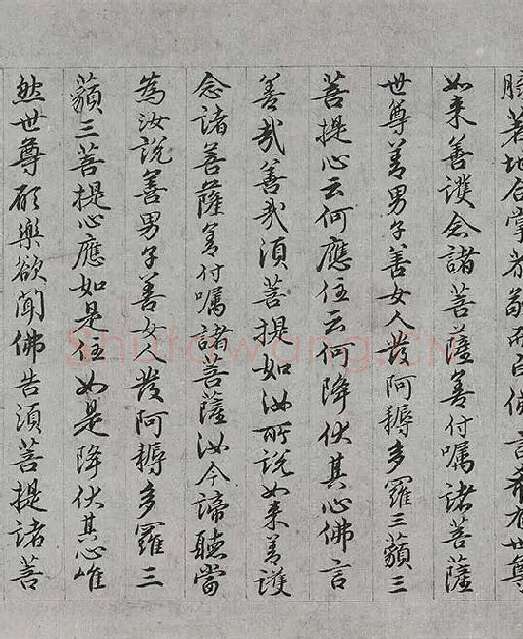 膝著地合掌恭敬而白佛言希有世尊
如来善護念諸菩薩善付嘱諸菩薩
世尊善男子善女人發阿耨多羅三藐三
菩提心云何應住云何降伏其心佛言
善哉善哉須菩提如汝所說如来善護
念諸菩薩善付嘱諸菩薩汝今諦聽當
為汝說善男子善女人發阿耨多羅三
藐三菩提心應如是住如是降伏其心唯
然世尊願樂欲聞佛告須菩提諸菩